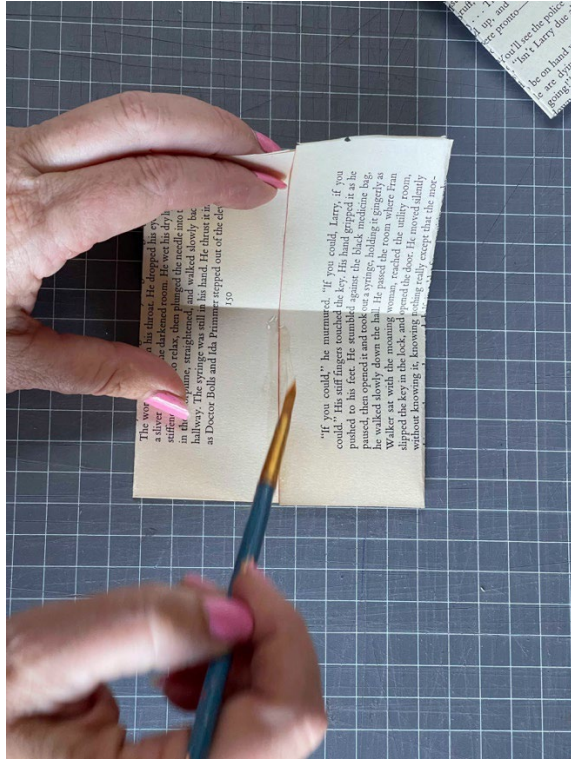 The wor
his throat. He dropped his ey
a sliver
e darkened room. He wet his dry h
stiffene
o relax, then plunged the needle into t
in the
orphine, straightened, and walked slowly bac
hallway. The syringe was still in his hand. He thrust it in
as Doctor Bolls and Ida Primmer stepped out of the elev
150
"If you could," he murmured. "If you could, Larry, if you
could." His stiff fingers touched the key. His hand gripped it as he
pushed to his feet. He stumbled against the black medicine bag,
paused, then opened it and took out a syringe, holding it gingerly as
he walked slowly down the hall. He passed the room where Fran
Walker sat with the moaning woman, reached the utility room,
slipped the key in the lock, and opened the door. He moved silently
without knowing it, knowing nothing really except that the mor-
up, and
ere pronto—
You'll see the police
"Isn't Larry due
be on hand
le are dyin
going